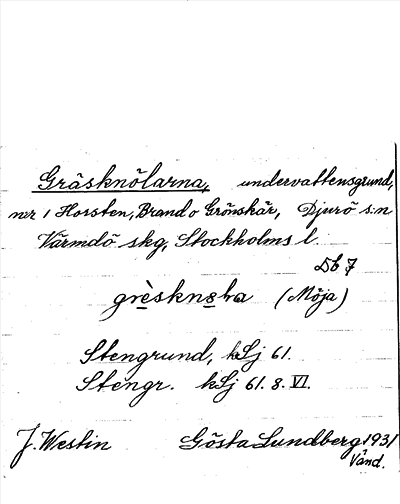 Gräsknölarna, undervattensgrund,
nr 1 Horsten, Brand o Grönskär, Djurö s:n
Värmdö skg, Stockholms l.
Db 7
(Möja)
Stengrund, kSj 61.
Stengr. kSj 61. 8. VI.
J. Westin Gösta Lundberg 1931
Vänd.